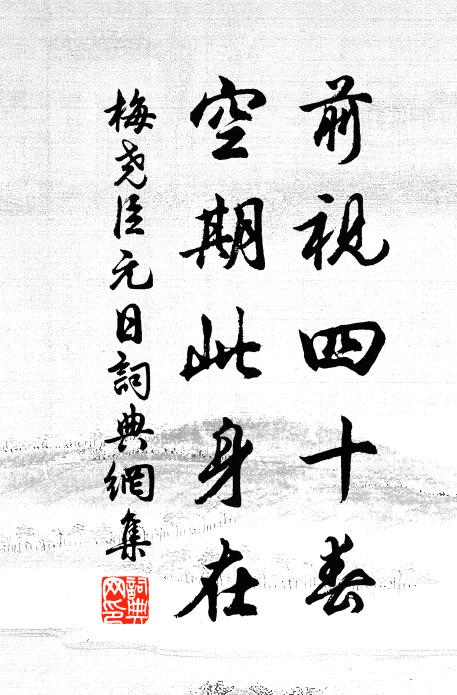 前視四十春
空期此身在
梅堯臣元日詞典網集
詞典网印